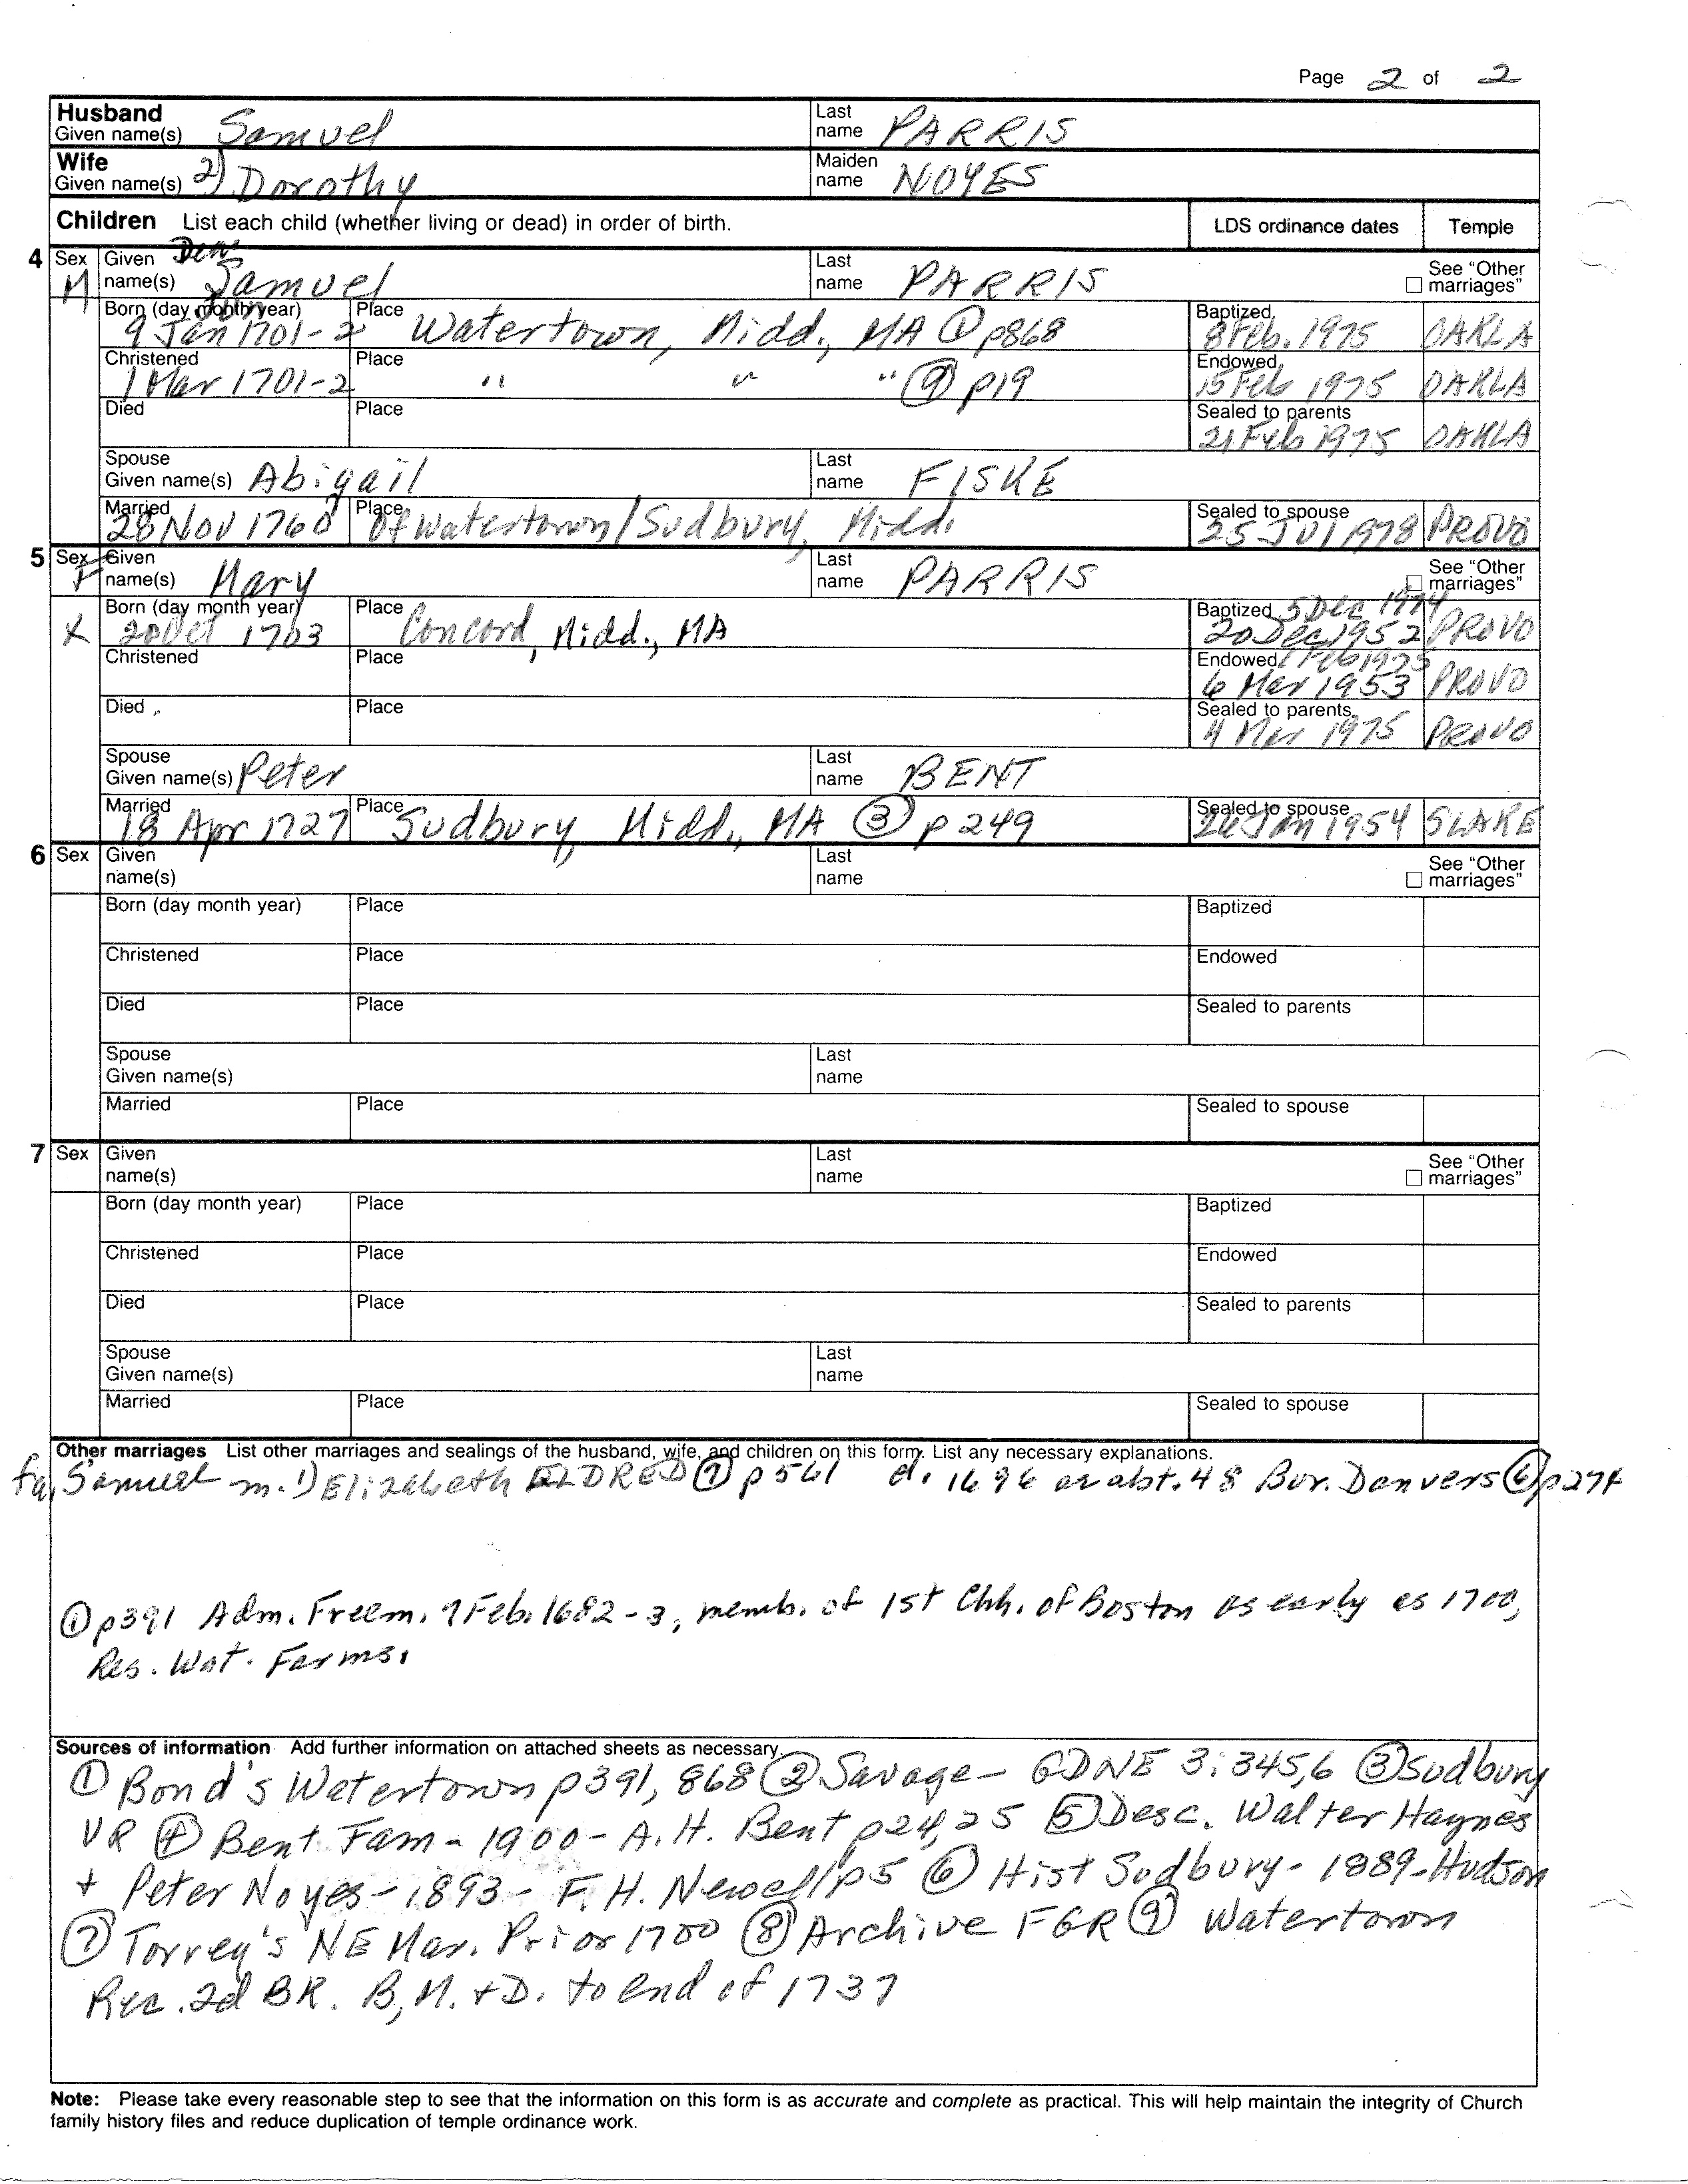 Page 2 of 2
Husband Given name(s) Samuel Last name PARRIS
Wife Given name(s) 2) Dorothy Maiden name NOYES
Children List each child (whether living or dead) in order of birth. LDS ordinance dates Temple
4 Sex M Given name(s) Samuel Last name PARRIS See "Other marriages"
Born (day month year) 9 Jan 1701-2 Place Watertown, Midd., MA ① p868 Baptized 8 Feb. 1975 OAKLA
Christened 1 Mar 1701-2 Place " " " ⑨ p19 Endowed 15 Feb 1975 OAKLA
Died Place Sealed to parents 21 Feb 1975 OAKLA
Spouse Given name(s) Abigail Last name FISKE
Married 28 Nov 1760 Place Of Watertown/Sudbury, Midd. Sealed to spouse 25 Jul 1978 PROVO
5 Sex F Given name(s) Mary Last name PARRIS See "Other marriages"
X Born (day month year) 20 Oct 1703 Place Concord, Midd., MA Baptized 5 Dec 1974 20 Dec 1952 PROVO
Christened Place Endowed Feb 1975 6 Mar 1953 PROVO
Died Place Sealed to parents 4 Mar 1975 PROVO
Spouse Given name(s) Peter Last name BENT
Married 18 Apr 1727 Place Sudbury, Midd., MA ③ p249 Sealed to spouse Jan 1954 SLAKE
6 Sex Given name(s) Last name See "Other marriages"
Born (day month year) Place Baptized
Christened Place Endowed
Died Place Sealed to parents
Spouse Given name(s) Last name
Married Place Sealed to spouse
7 Sex Given name(s) Last name See "Other marriages"
Born (day month year) Place Baptized
Christened Place Endowed
Died Place Sealed to parents
Spouse Given name(s) Last name
Married Place Sealed to spouse
Other marriages List other marriages and sealings of the husband, wife, and children on this form. List any necessary explanations.
fa, Samuel m. 1) Elizabeth ELDRED ⑦ p561 d. 1696 ae abt. 48 Bur. Danvers ⑥ p274
① p391 Adm. Freem. 9 Feb. 1682-3, memb. of 1st Chh. of Boston as early as 1700,
Res. Wat. Farms.
Sources of information Add further information on attached sheets as necessary.
① Bond's Watertown p391, 868 ② Savage- GDNE 3:345,6 ③ Sudbury
VR ④ Bent Fam- 1900- A.H. Bent p24,25 ⑤ Desc. Walter Haynes
+ Peter Noyes- 1893- F.H. Newell p5 ⑥ Hist Sudbury- 1889-Hudson
⑦ Torrey's NE Mar. Prior 1700 ⑧ Archive FGR ⑨ Watertown
Rec. 2d BK. B, M. + D. to end of 1737
Note: Please take every reasonable step to see that the information on this form is as accurate and complete as practical. This will help maintain the integrity of Church
family history files and reduce duplication of temple ordinance work.